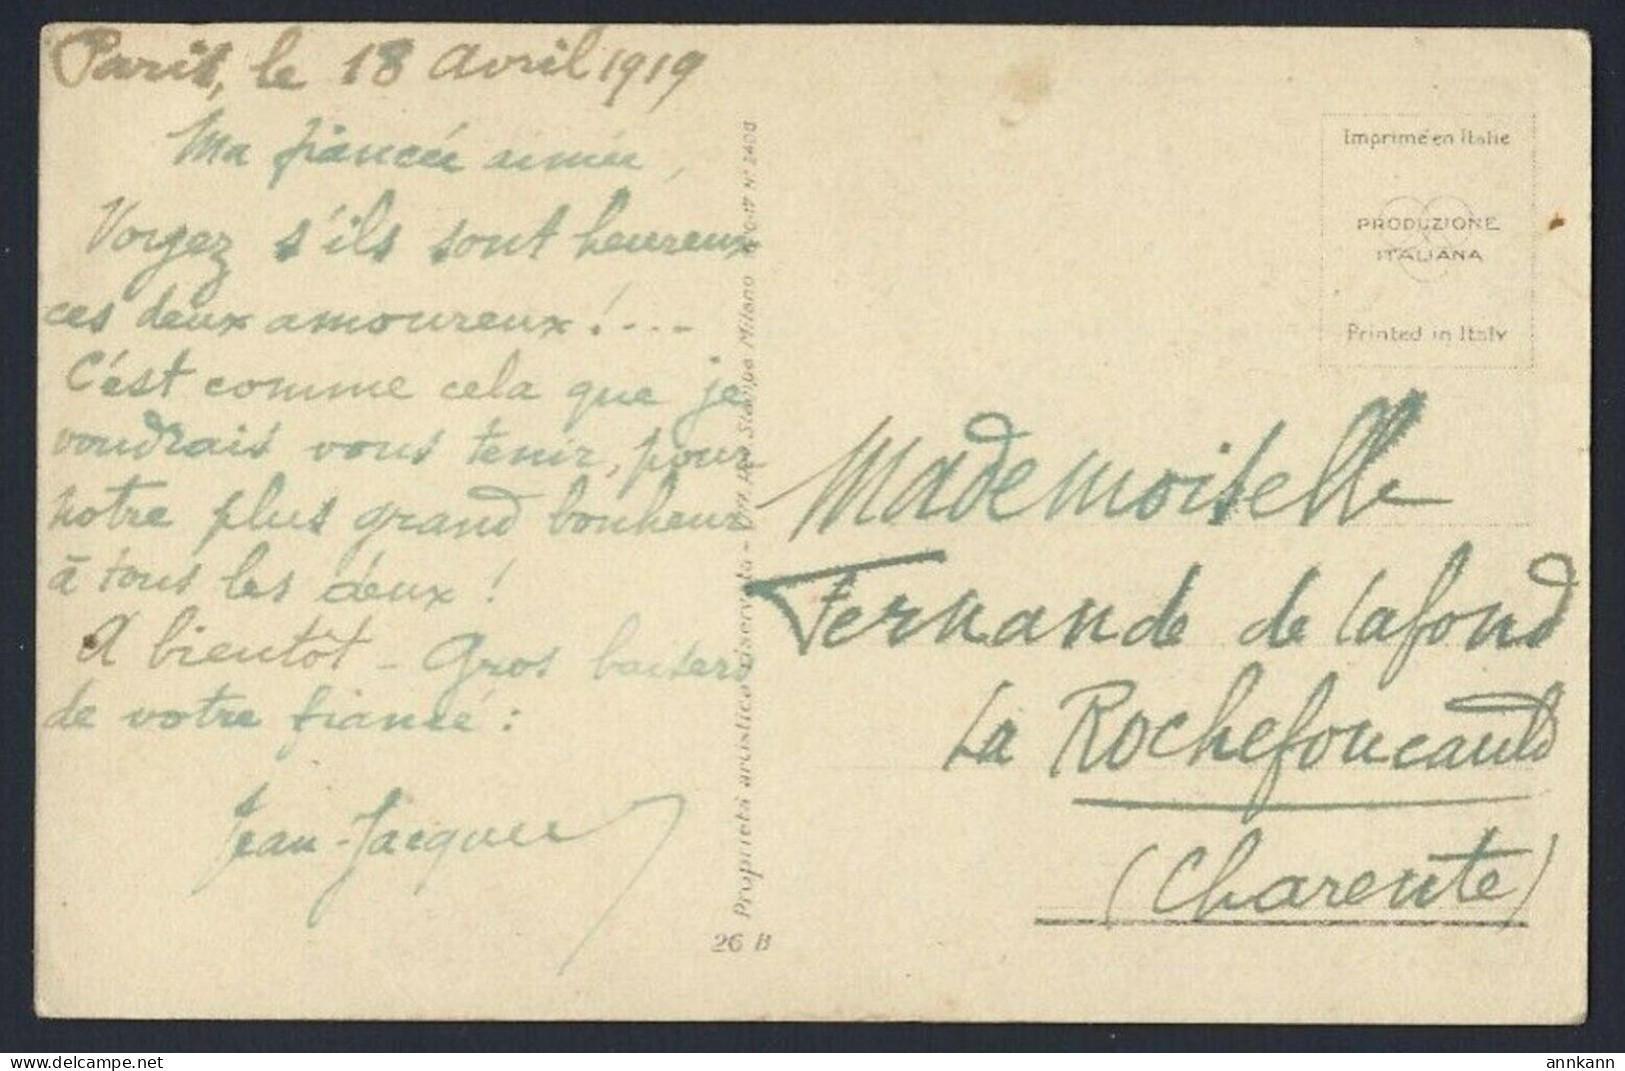 Paris, le 18 Avril 1919
Ma fiancée aimée,
Voyez s'ils sont heureux
ces deux amoureux!....
C'est comme cela que je
voudrais vous tenir, pour
notre plus grand bonheur
à tous les deux!
A bientôt - Gros baisers
de votre fiancé:
Jean-Jacques
Proprietà artistica riservata - Dep. Stampa Milano
26 B
Imprimé en Italie
PRODUZIONE
ITALIANA
Printed in Italy
Mademoiselle
Fernande de Lafond
La Rochefoucauld
(Charente)
annkann